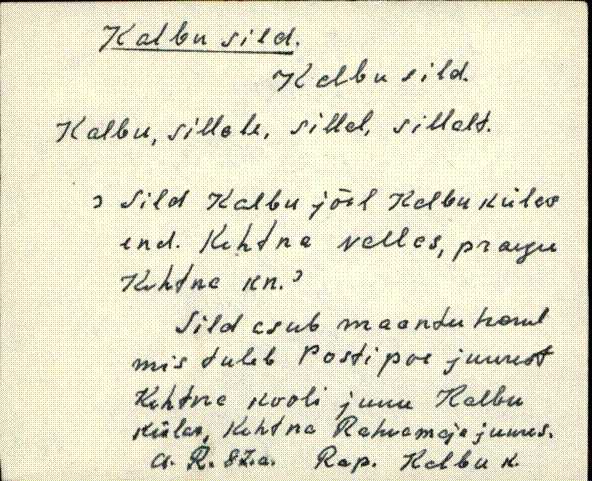 Kalbu sild.
Kalbu sild.
Kalbu, sillale, sillal, sillalt.
› Sild Kalbu jõel Kalbu külas
end. Kehtna vallas, praegu
Kehtna kn.›
Sild asub maanteel
mis tuleb Postipoe juurest
Kehtna kooli juure Kalbu
külas, Kehtna Rahvamaja juures.
A. R. 82.a. Rap. Kalbu k.